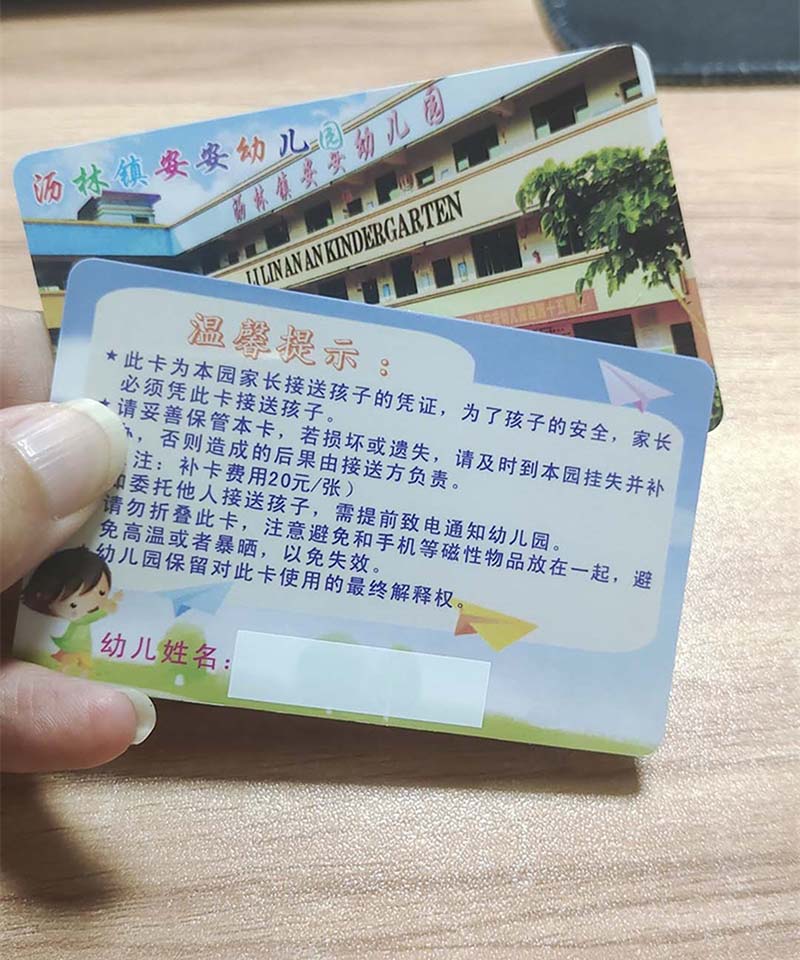 沥林镇安安幼儿园
沥林镇安安幼儿园
LI LIN AN AN KINDERGARTEN
温馨提示：
★此卡为本园家长接送孩子的凭证，为了孩子的安全，家长
必须凭此卡接送孩子。
★请妥善保管本卡，若损坏或遗失，请及时到本园挂失并补
办，否则造成的后果由接送方负责。
注：补卡费用20元/张）
如委托他人接送孩子，需提前致电通知幼儿园。
请勿折叠此卡，注意避免和手机等磁性物品放在一起，避
免高温或者暴晒，以免失效。
幼儿园保留对此卡使用的最终解释权。
幼儿姓名：